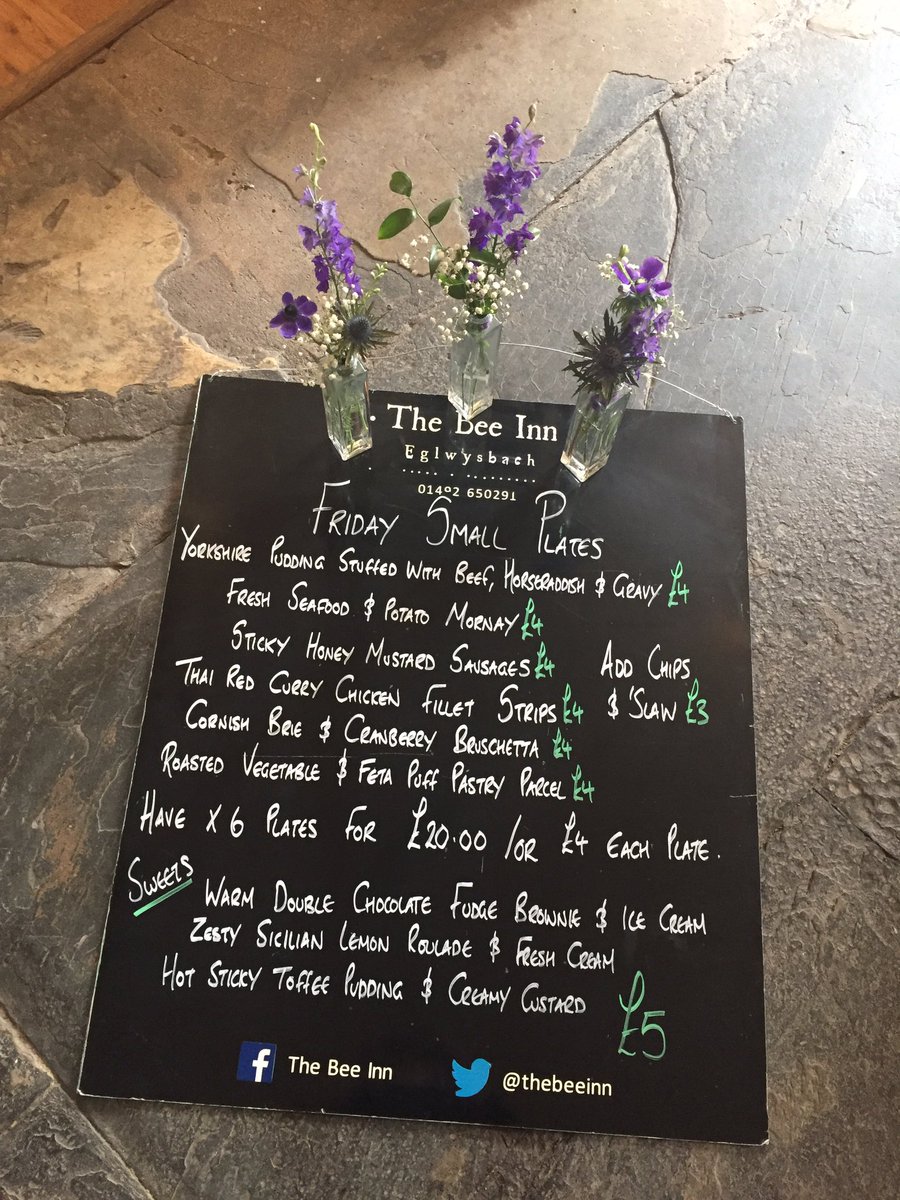 The Bee Inn
Eglwysbach
01492 650291
FRIDAY SMALL PLATES
YORKSHIRE PUDDING STUFFED WITH BEEF, HORSERADDISH & GRAVY £4
FRESH SEAFOOD & POTATO MORNAY £4
STICKY HONEY MUSTARD SAUSAGES £4
ADD CHIPS
THAI RED CURRY CHICKEN FILLET STRIPS £4
& 'SLAW £3
CORNISH BRIE & CRANBERRY BRUSCHETTA £4
ROASTED VEGETABLE & FETA PUFF PASTRY PARCEL £4
HAVE X 6 PLATES FOR £20.00 /OR £4 EACH PLATE.
SWEETS
WARM DOUBLE CHOCOLATE FUDGE BROWNIE & ICE CREAM
ZESTY SICILIAN LEMON ROULADE & FRESH CREAM
HOT STICKY TOFFEE PUDDING & CREAMY CUSTARD
£5
f The Bee Inn
@thebeeinn